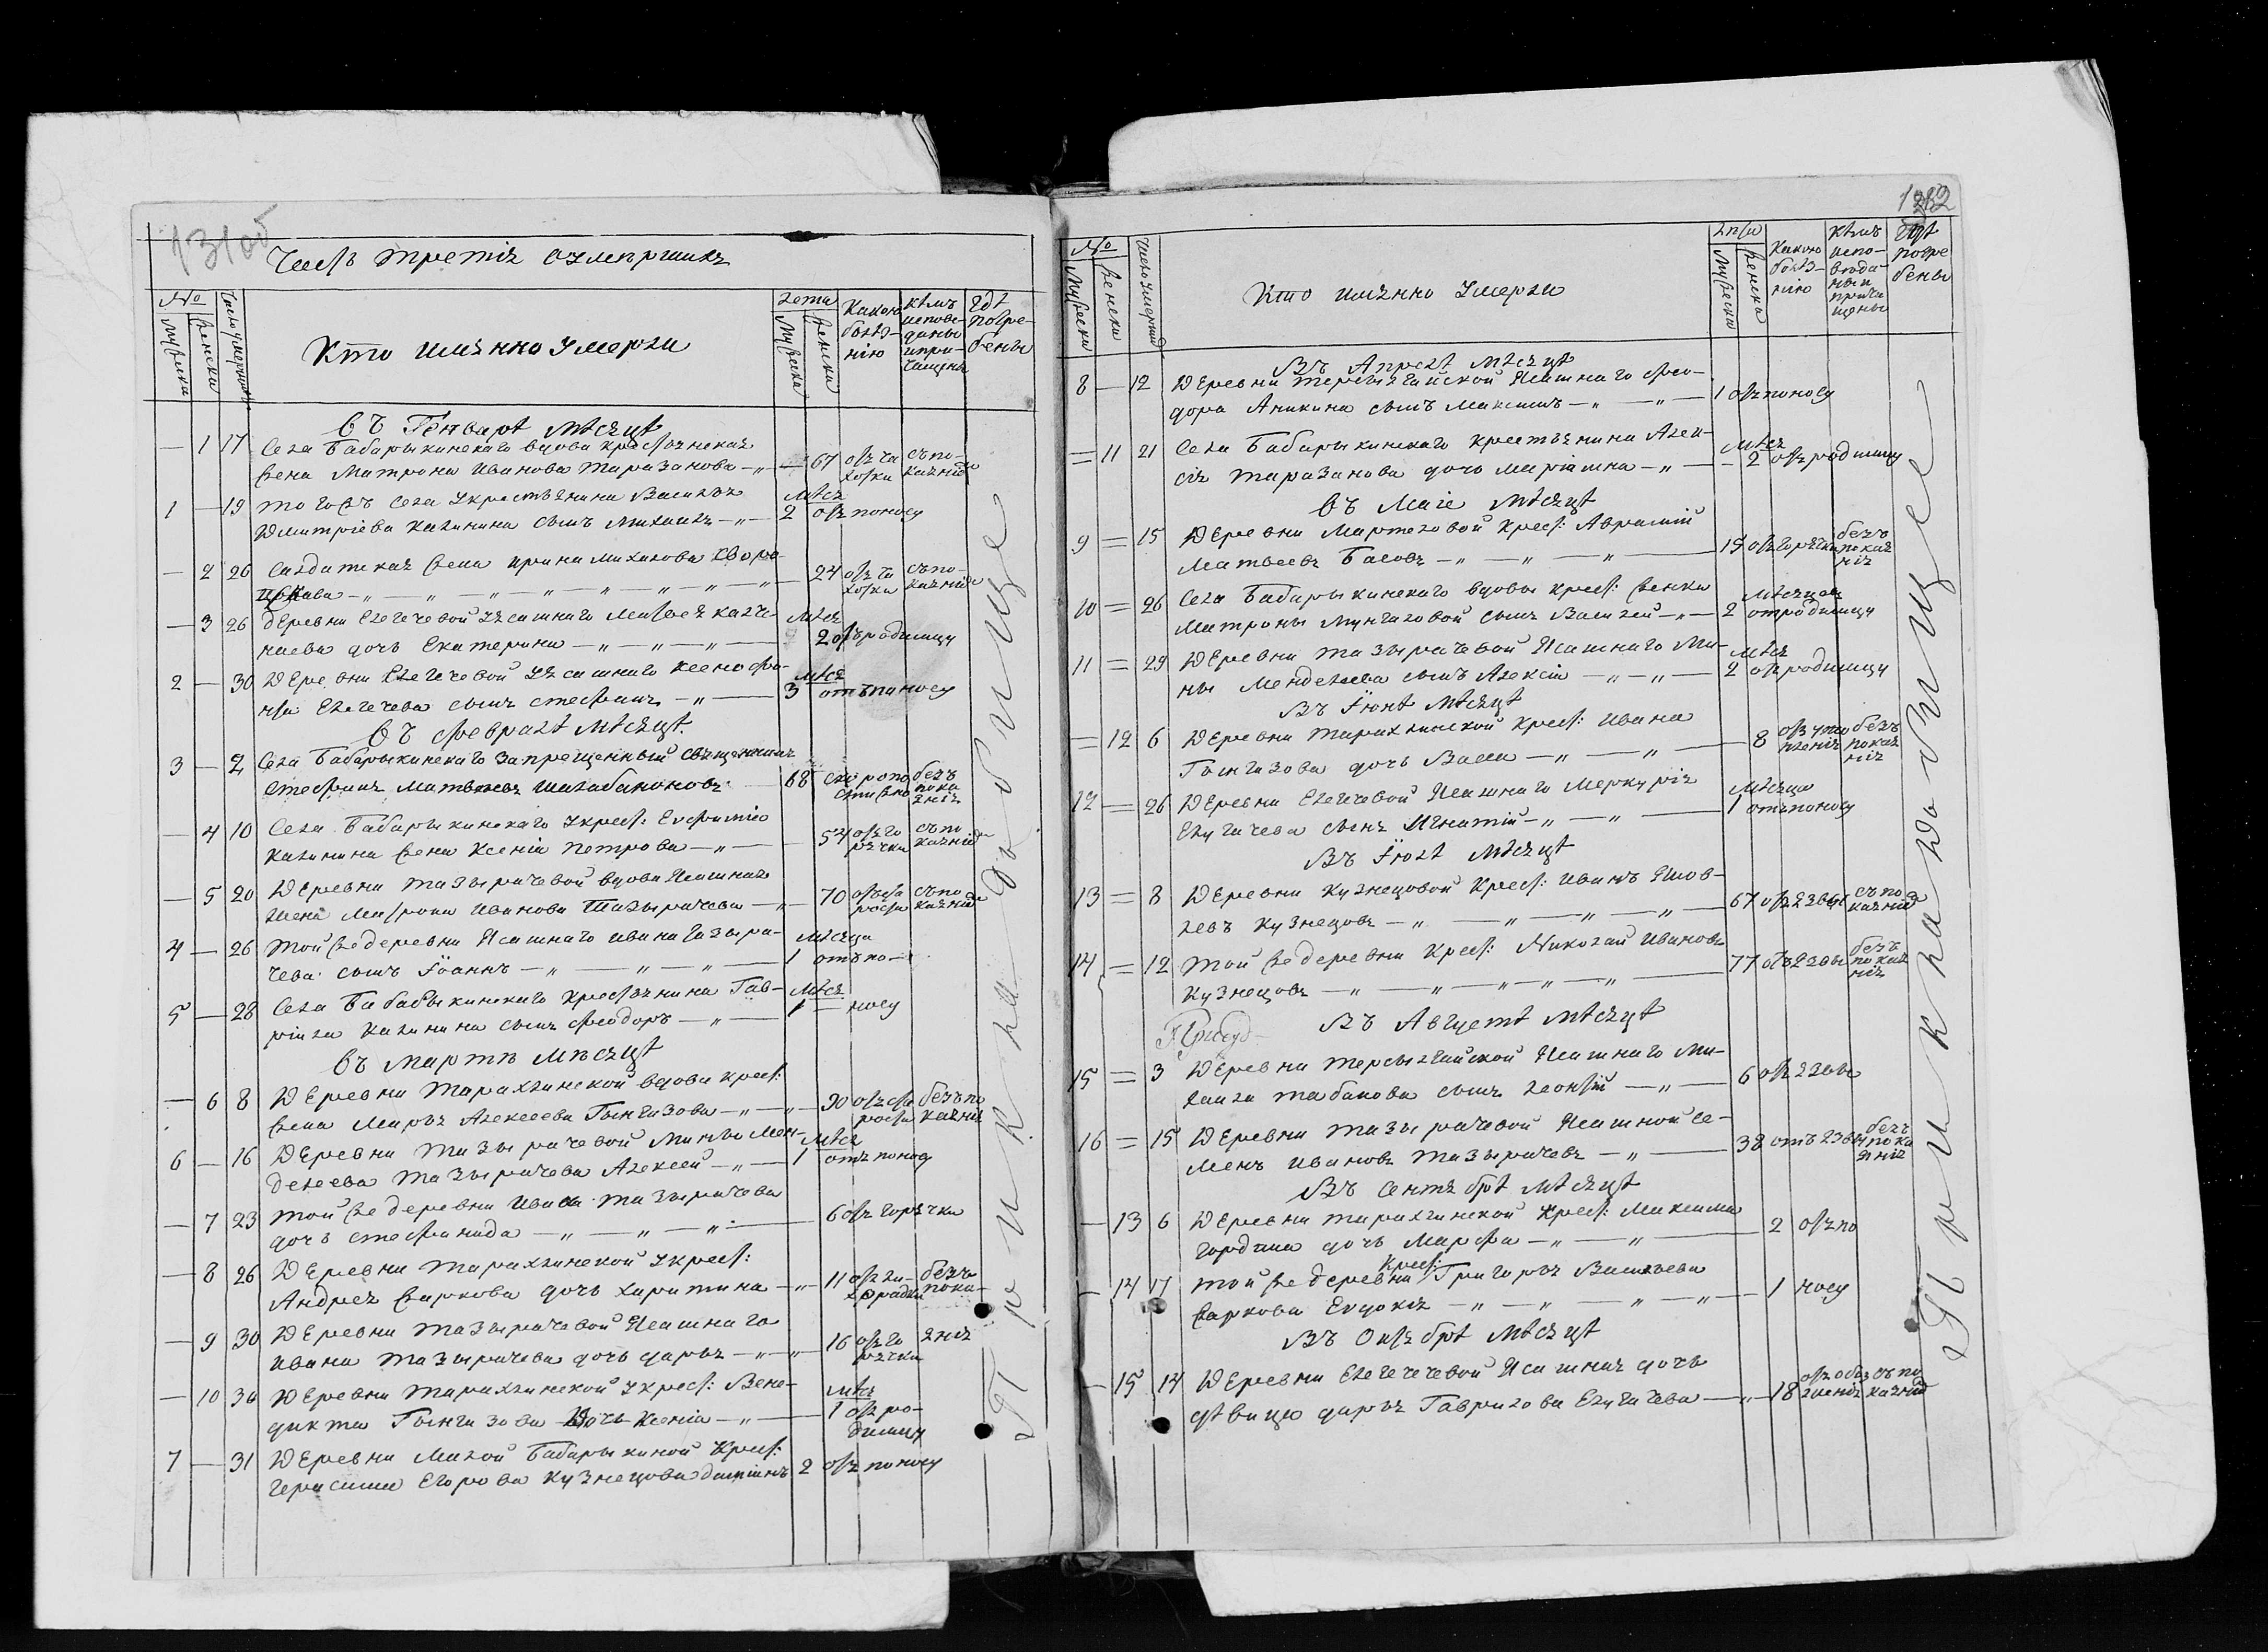 131об
Часть третія о умершихъ
№
Мужеска
Женска
Число умершихъ
Кто имянно умерли
Лета
Мужеска
Женска
Какою
болѣз-
нію
Кѣмъ
испове-
даны
и при-
чащены
Гдѣ
погре-
бены
Въ Генварѣ мѣсяцѣ
— 1 17 Села Бабарыкинскаго вдова крестьянская
жена Матрона Иванова Таразанова —„— 67 отъ ча съпо-
хотки каяніемъ
1 — 19 того жъ села Укрестьянина Василья
Дмитріева Калинина сынъ Михаилъ —„— мѣся 2 отъ поносу
— 2 26 Салдатская жена Ирина Михайлова
24 отъ ча съпо-
хотки каяніемъ
— 3 26 деревни Елегечевой Уясашнаго Матвея
дочь Екатерина —„—„—„— мѣся 2 отъ родимцу
2 — 30 Деревни Елегечевой Уясашнаго Ксенофо-
нта Елегечева сынъ Стефанъ —„— мѣся 3 отъ поносу
Въ Февралѣ мѣсяцѣ.
3 — 2 Села Бабарыкинскаго запрещенный священникъ
Стефанъ Матвеевъ Шалабановъ 68 скоропо безъ
стижно пока
яніе
— 4 10 Села Бабарыкинскаго Укрест: Евфимія
Калинина жена Ксенія Петрова —„— 54 отъ го съпо
рячки каяніе
— 5 20 Деревни Тазырачевой вдова Ясашная
жена Матрона Иванова Тазырачева —„— 70 отъ ста съпо
рости каяніе
4 — 26 Той же деревни Ясашнаго Ивана Тазыра- мѣсяца
чева сынъ Іоаннъ —„—„—„— 1 отъ по-
5 — 28 Села Бабарыкинскаго Крестьянина Гав- мѣся
ріила Калинина сынъ Феодоръ —„— 1 — носу
Въ Мартѣ мѣсяцѣ
— 6 8 Деревни Тарахлинской вдова крест:
жена Марья Алексеева Гынгазова —„—„— 90 отъ ста безъ по
рости каянія
6 — 16 Деревни Тазырачевой Мины Мен- мѣся
делеева Тазырачева Алексей —„— 1 отъ поносу
— 7 23 Той же деревни Ивана Тазырачева
дочь Стефанида —„—„—„— 6 отъ горячки
— 8 26 Деревни Тарахлинской Укрест:
Андрея Жаркова дочь Харитина —„— 11 отъ ли- безъ
хорадки пока-
— 9 30 Деревни Тазырачевой Ясашнаго
Ивана Тазырачева дочь Дарья —„—„— 16 отъ го янія
рячки
— 10 30 Деревни Тарахлинской Укрест: Вене- мѣся
дикта Гынгазова дочь Ксенія —„— 1 отъ ро-
димцу
7 — 31 Деревни Малой Бабарыкиной Крест:
Герасима Егорова Кузнецова 2 отъ поносу
При Кладбище
132
№
Мужеска
Женска
Число умершихъ
Кто имянно Умерли
Лѣта
Мужеска
Женска
Какою
болѣз-
нію
Кѣмъ
испо-
вѣда-
ны и
прича
щены
Гдѣ
погре
бены
Въ Апрелѣ мѣсяцѣ
8 — 12 Деревни Терсылгайской Ясашнаго Фео-
дора Аникина сынъ Максимъ —„—„— 1 отъ поносу
= 11 21 Села Бабарыкинскаго Крестьянина Алек- мѣся
сія Таразанова дочь Маріамна —„— 2 отъ родимцу
Въ Маіе мѣсяцѣ
9 = 15 Деревни Мартеловой Крест: Аврамій
Матвеевъ Басовъ —„—„—„— 19 отъ горячки безъ
покая
нія
10 = 26 Села Бабарыкинскаго вдовы Крест: женки мѣсяцев
Матроны Мунгаловой сынъ Василей —„— 2 отродимцу
11 = 29 Деревни Тазырачевой Ясашнаго Ми- мѣся
ны Менделеева сынъ Алексій —„—„— 2 отъ родимцу
Въ Іюнѣ мѣсяцѣ
= 12 6 Деревни Тарахлинской Крест: Ивана
Гынгазова дочь Васса —„—„— 8 отъ уто безъ
пленія покая
нія
12 = 26 Деревни Елегечевой Ясашнаго Меркурія мѣсяца
Елугачева сынъ Игнатій —„—„— 1 отъ поносу
Въ Іюлѣ мѣсяцѣ
13 = 8 Деревни Кузнецовой Крест: Иванъ Яков-
левъ Кузнецовъ —„—„—„—„— 67 отъ язвы съпо
каяніе
14 = 12 Той же деревни Крест: Николай Ивановъ
Кузнецовъ —„—„—„—„— 77 отъ язвы безъ
покая
нія
Въ Августѣ мѣсяцѣ
15 = 3 Деревни Терсылгайской Ясашнаго Ми-
хаила Табакова сынъ Леонтій —„— 6 отъ язвы
16 = 15 Деревни Тазырачевой Ясашной Се-
менъ Ивановъ Тазырачевъ —„— 38 отъ язвы безъ
пока
янія
Въ Сентябрѣ мѣсяцѣ
— 13 6 Деревни Тарахлинской Крест: Максима
дочь Марфа —„—„— 2 отъ по
— 14 17 Той же деревни Крест: Григорья Васильева
Жаркова Евдокія —„—„—„—„— 1 носу
Въ Октябрѣ мѣсяцѣ
— 15 14 Деревни Елегечечевой Ясашная дочь
дѣвица Дарья Гаврилова Елугачева —„— 18 съпо
каяніе
При Кладбище